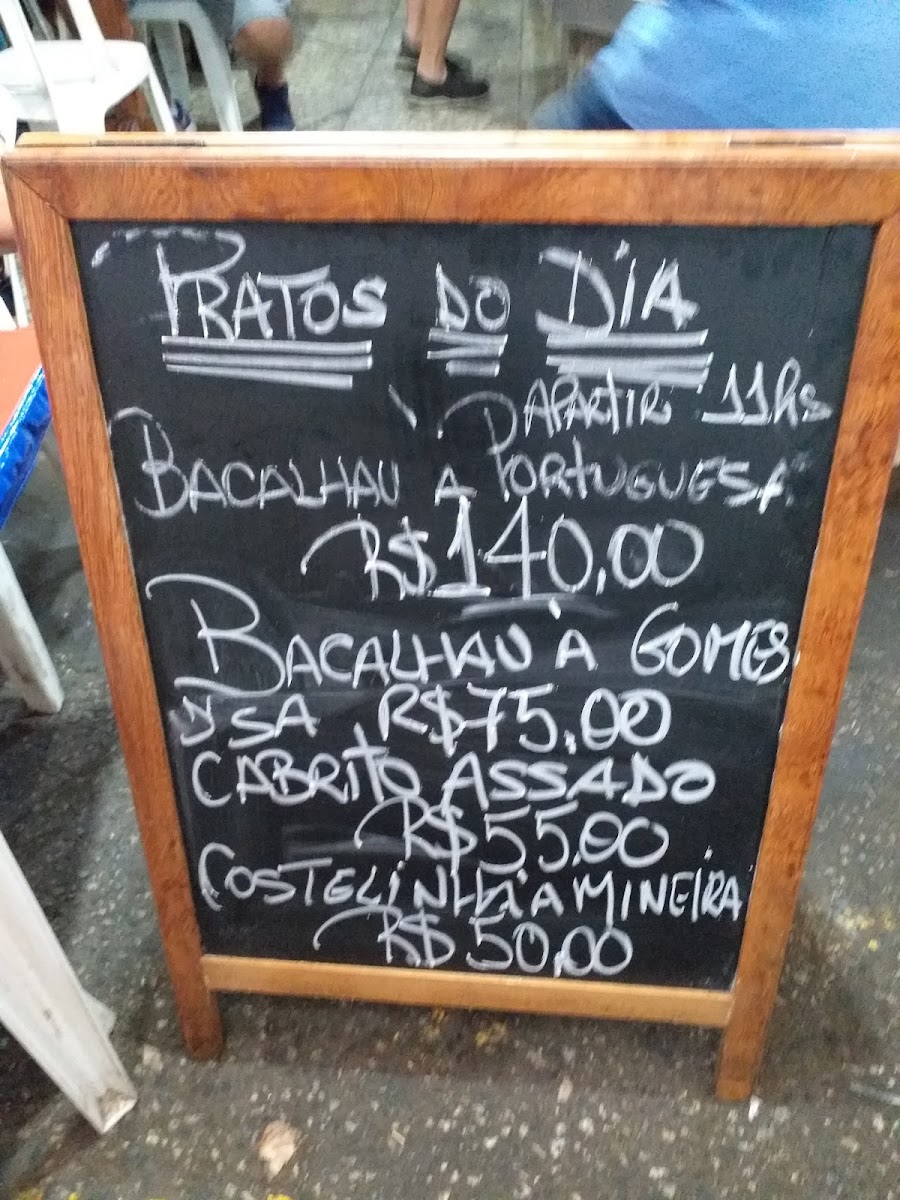 PRATOS DO DIA
DAPARTIR 11hs
BACALHAU A PORTUGUESA
R$140,00
BACALHAU À GOMES
SA R$75,00
CABRITO ASSADO
R$55,00
COSTELINHA À MINEIRA
R$50,00